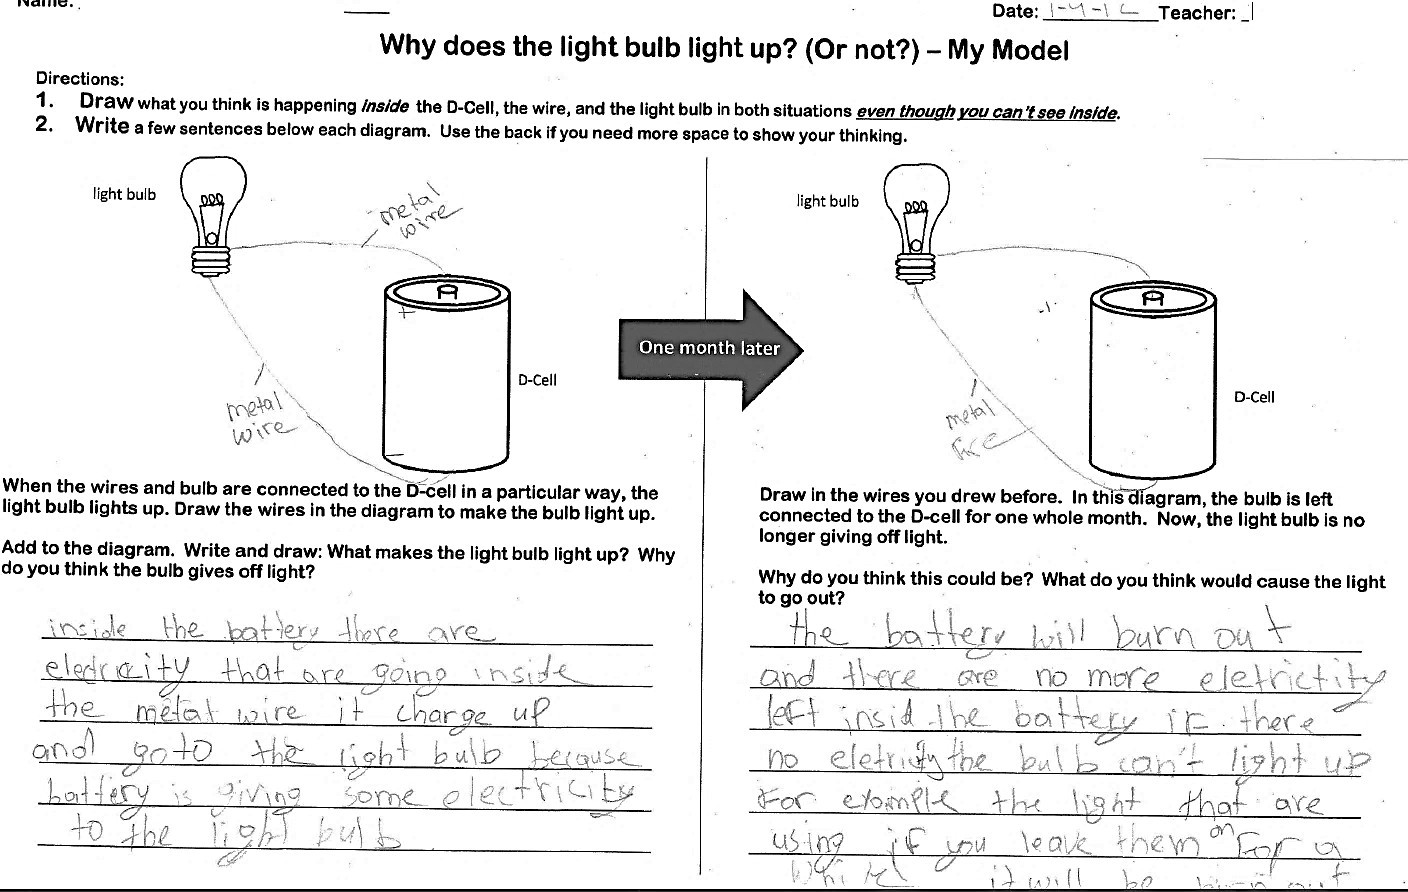 Name:
Date: 1-4-1 Teacher:
Why does the light bulb light up? (Or not?) – My Model
Directions:
1. Draw what you think is happening inside the D-Cell, the wire, and the light bulb in both situations even though you can't see inside.
2. Write a few sentences below each diagram. Use the back if you need more space to show your thinking.
light bulb
metal
wire
+
D-Cell
metal
wire
-
One month later
light bulb
D-Cell
metal
When the wires and bulb are connected to the D-cell in a particular way, the
light bulb lights up. Draw the wires in the diagram to make the bulb light up.
Add to the diagram. Write and draw: What makes the light bulb light up? Why
do you think the bulb gives off light?
inside the battery there are
eledrcity that are going inside
the metal wire it charge up
and go to the light bulb because
battery is giving some electricity
to the light bulb
Draw in the wires you drew before. In this diagram, the bulb is left
connected to the D-cell for one whole month. Now, the light bulb is no
longer giving off light.
Why do you think this could be? What do you think would cause the light
to go out?
the battery will burn out
and there are no more eletrictity
left insid the battery if there
no eletricity the bulb can't light up
For example the light that are
using if you leave them on for a
it will be out